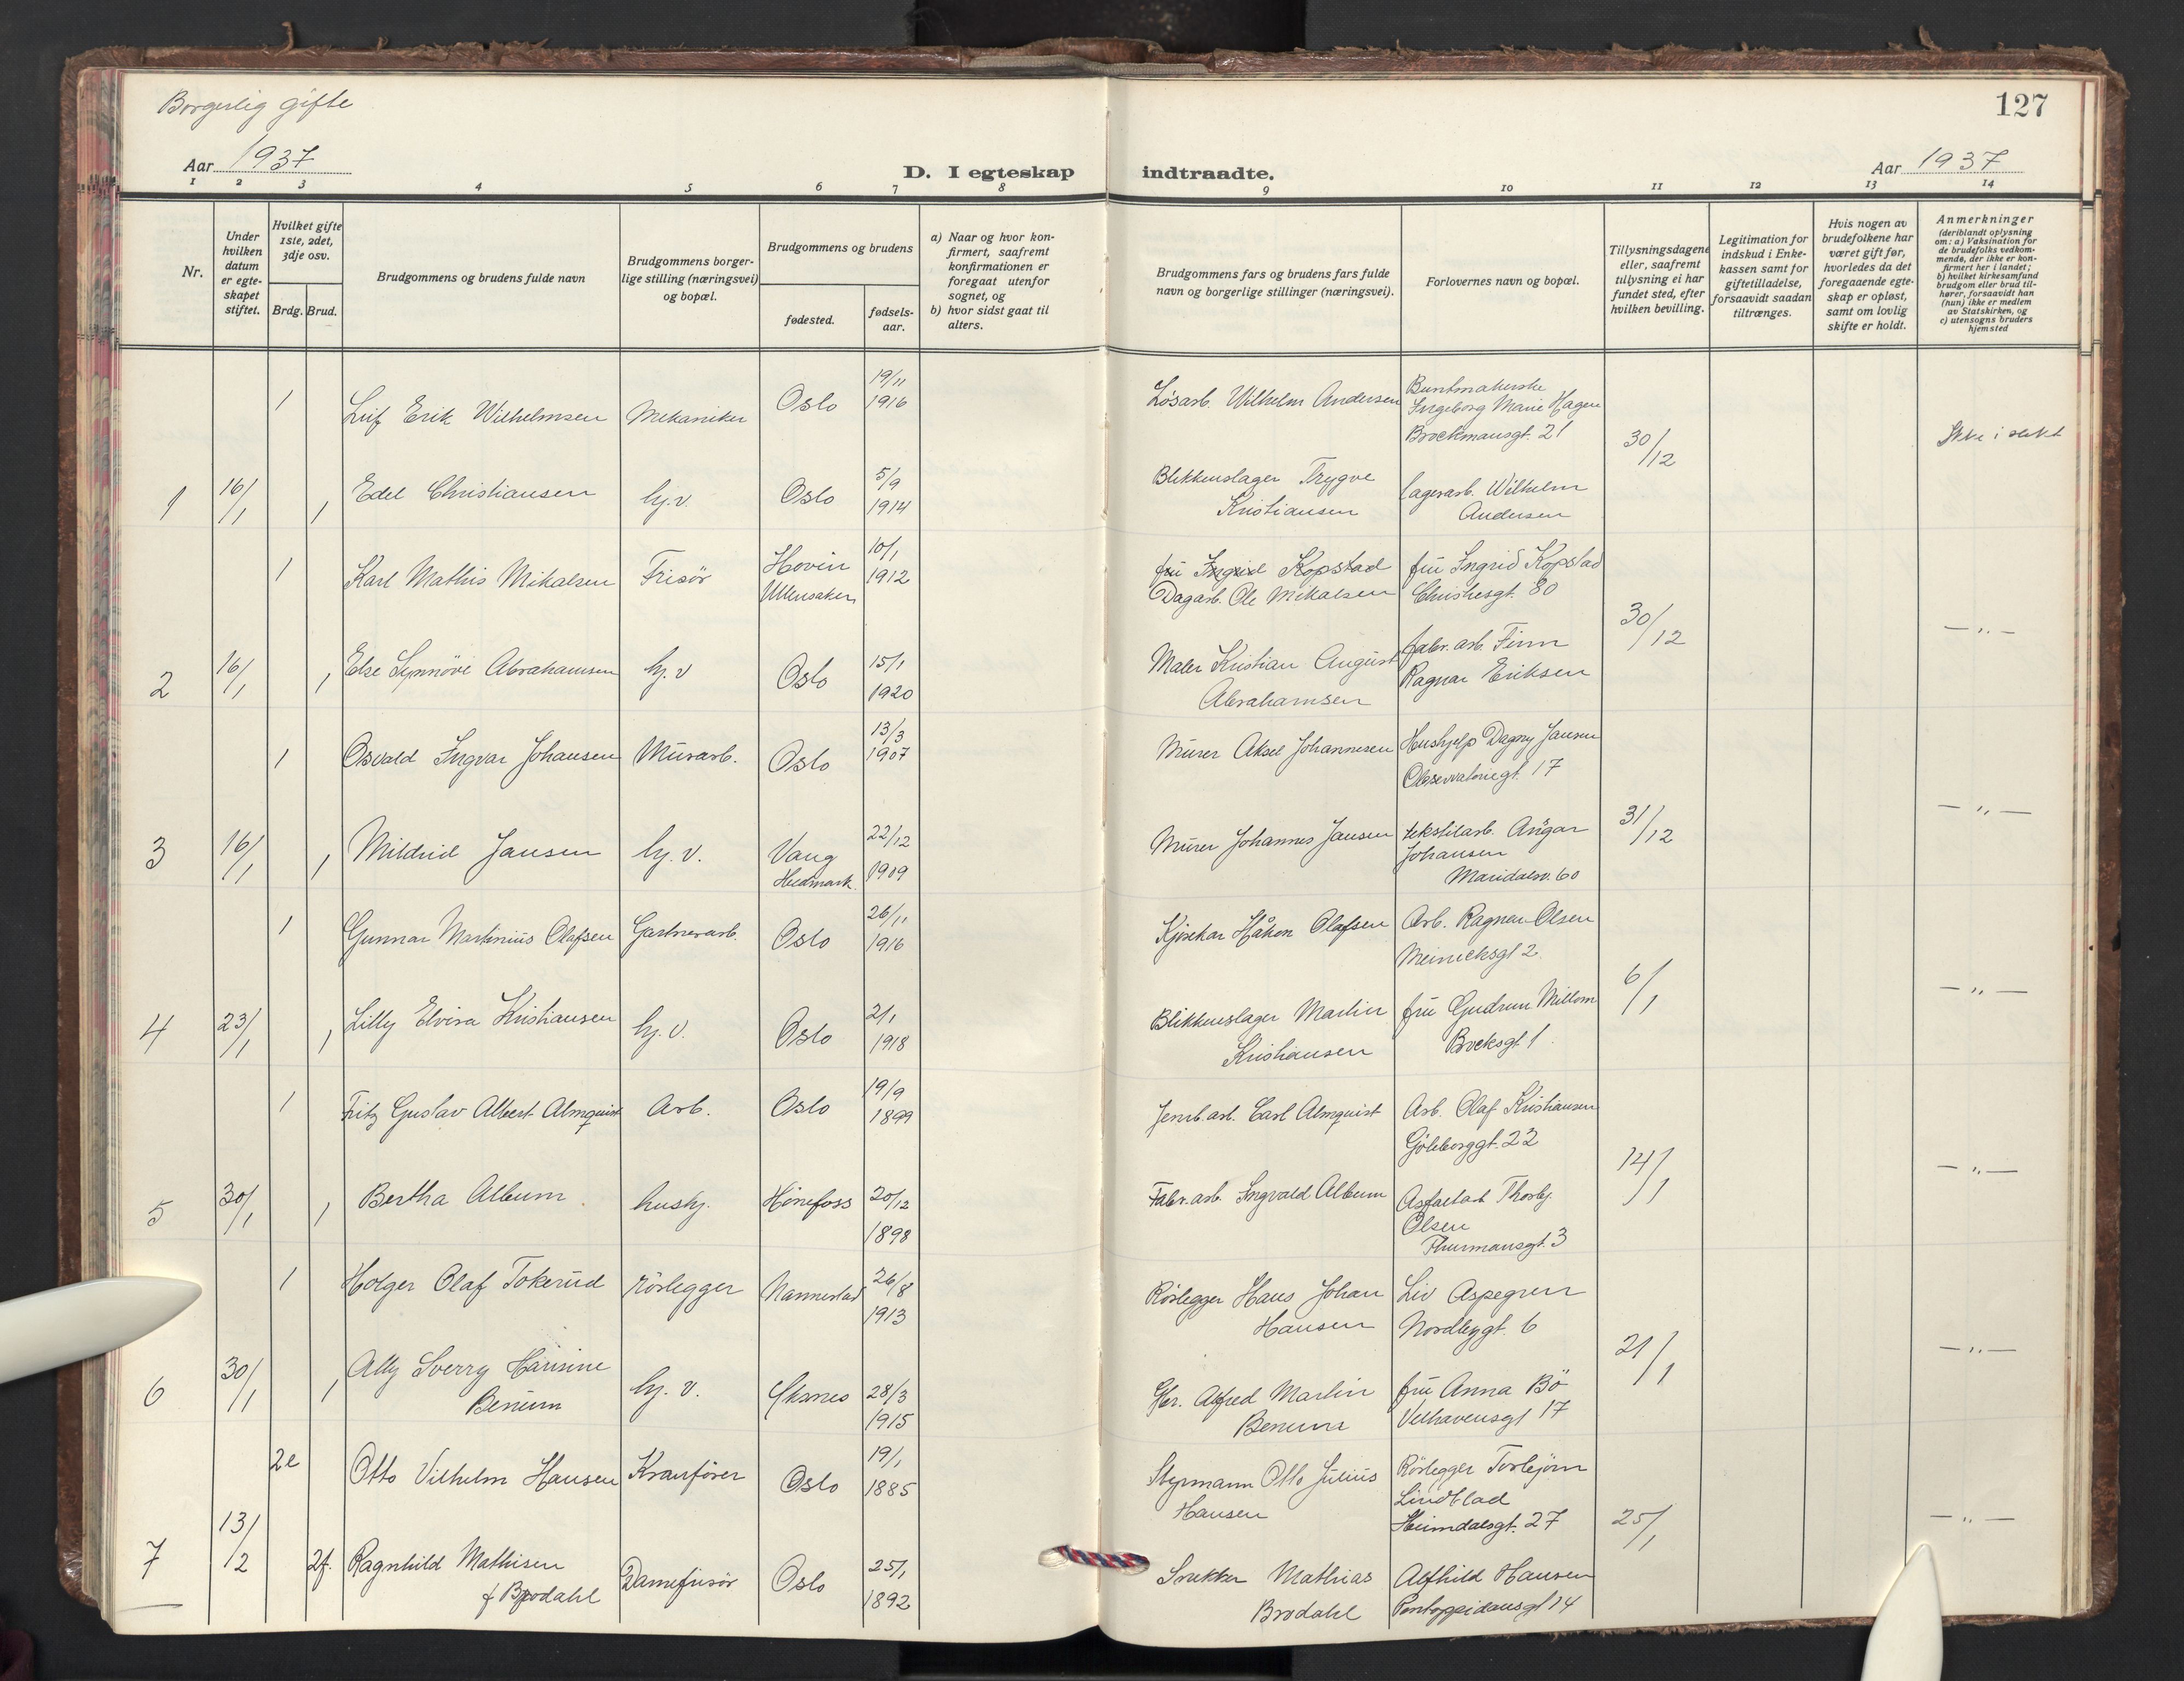 Borgerlig gifte
127
Aar 1937
D. I egteskap
indtraadte.
Aar 1937
1 2 3 4 5 6 7 8 9 10 11 12 13 14
Nr.
Under
hvilken
datum
er egte-
skapet
stiftet.
Hvilket gifte
1ste, 2det,
3dje osv.
Brdg. Brud.
Brudgommens og brudens fulde navn
Brudgommens borger-
lige stilling (næringsvei)
og bopæl.
Brudgommens og brudens
fødested.
fødsels-
aar.
a) Naar og hvor kon-
firmert, saafremt
konfirmationen er
foregaat utenfor
sognet, og
b) hvor sidst gaat til
alters.
Brudgommens fars og brudens fars fulde
navn og borgerlige stillinger (næringsvei).
Forlovernes navn og bopæl.
Tillysningsdagene
eller, saafremt
tillysning ei har
fundet sted, efter
hvilken bevilling.
Legitimation for
indskud i Enke-
kassen samt for
giftetilladelse,
forsaavidt saadan
tiltrænges.
Hvis nogen av
brudefolkene har
været gift før,
hvorledes da det
foregaaende egte-
skap er opløst,
samt om lovlig
skifte er holdt.
Anmerkninger
(deriblandt oplysning
om: a) Vaksination for
de brudefolks vedkom-
mende, der ikke er kon-
firmert her i landet;
b) hvilket kirkesamfund
brudgom eller brud til-
hører, forsaavidt han
(hun) ikke er medlem
av Statskirken, og
c) utensogns bruders
hjemsted
1 Leif Erik Wilhelmsen Mekaniker Oslo 19/11 1916
Løsarb. Wilhelm Andersen
Buntmakerske
Ingeborg Marie Hagen
Brockmansgt. 21
30/12
Ikke i slekt
1 16/1 1 Edel Christiansen hj.v. Oslo 5/9 1914
Blikkenslager Trygve
Kristiansen
lagerarb. Wilhelm
Andersen
1 Karl Mathis Mikalsen Frisör Hovin
Ullensaker 10/1 1912
fru Ingrid Kopstad
Dagarb. Ole Mikalsen
fru Ingrid Kopstad
Christiesgt. 80
30/12
— " —
2 16/1 1 Else Synnöve Abrahamsen hj.v Oslo 15/1 1920
Maler Kristian August
Abrahamsen
fabr. arb. Finn
Ragnar Eriksen
1 Osvald Ingvar Johansen Murarb. Oslo 13/3 1907
Murer Aksel Johannesen
Hushjelp Dagny Jansen
Observatoriegt. 17
31/12
— " —
3 16/1 1 Mildrid Jansen hj. v. Vang
Hedmark. 22/12 1909
Murer Johannes Jansen
tekstilarb. Ansgar
Johansen
Maridalsv. 60
1 Gunnar Martinius Olafsen Gartnerarb. Oslo 26/11 1916
Kjørekar Håkon Olafsen
Arb. Ragnar Olsen
Meinicksgt 2.
6/1
— " —
4 23/1 1 Lilly Elvira Kristiansen hj. v. Oslo 2/1 1918
Blikkenslager Martin
Kristiansen
fru Gudrun
Brocksgt. 1.
1 Fritz Gustav Albert Almquist Arb. Oslo 19/9 1899
Jernb. arb. Carl Almquist
Arb. Olaf Kristiansen
Göteborggt. 22
14/1
— " —
5 30/1 1 Bertha Album hushj. Hönefoss 20/12 1898
Fabr. arb. Ingvald Album
Asfaltarb Thorbj.
Olsen
Thurmansgt. 3
1 Holger Olaf Tokerud rörlegger Nannestad 26/8 1913
Rörlegger Hans Johan
Hansen
Liv Aspegren
Nordbygt. 6
21/1
— " —
6 30/1 1 Ally Sverry
Benum hj. v. Öksnes 28/3 1915
Gbr. Alfred Martin
Benum
fru Anna Bö
Velhavensgt 17
2e Otto Vilhelm Hansen Kranförer Oslo 19/1 1885
Styrmann Otto Julius
Hansen
Rörlegger Torbjörn
Lindblad
Heimdalsgt. 27
25/1
— " —
7 13/2 2f. Ragnhild Mathisen
f Brodahl Damefrisör Oslo 25/1 1892
Snekker Mathias
Brodahl
Alfhild Hansen
Pontoppidansgt 14